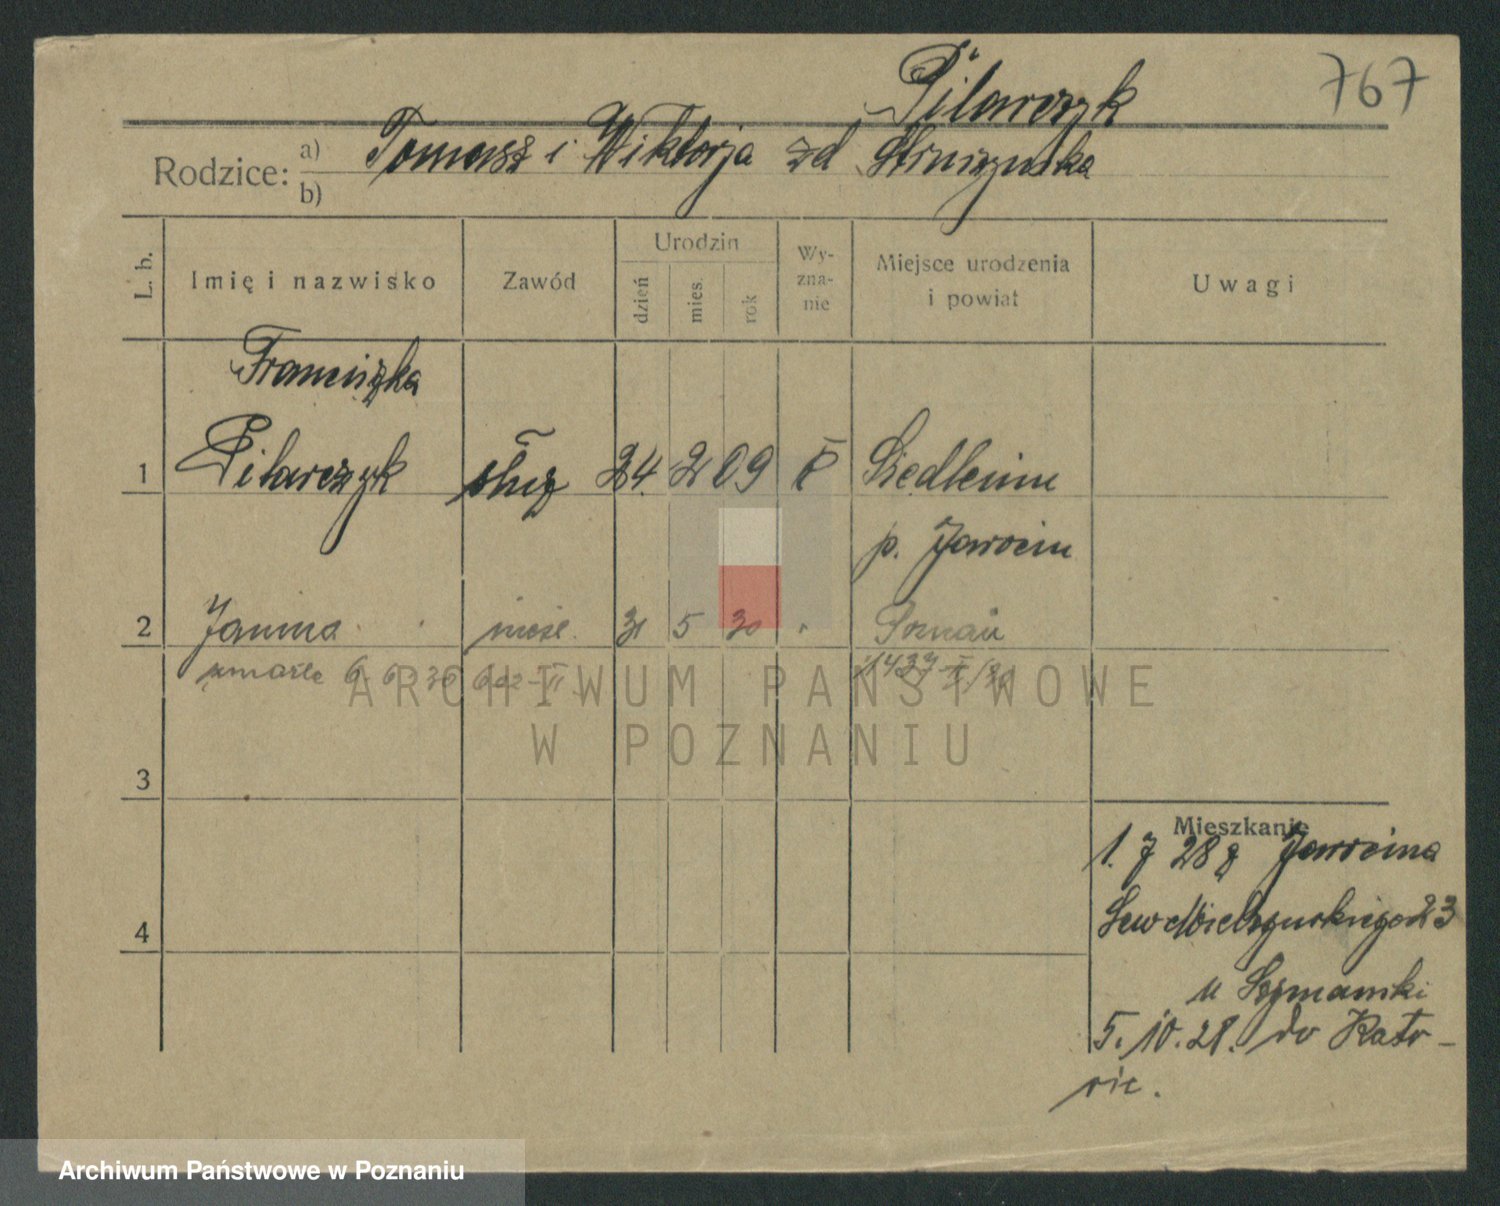 Pilarczyk 767
Rodzice: a) Tomasz i Wiktorja zd
b)
L. b. Imię i nazwisko Zawód Urodzin dzień mies. rok Wy-zna-nie Miejsce urodzenia i powiat Uwagi
Franciszka
1 Pilarczyk służ 24. 2 09 k Siedlemin
p. Jarocin
2 Janina nieśl. 31 5 30 Poznań
zmarła 6 6 30 602 - II 1437-II/30
ARCHIWUM PAŃSTWOWE
W POZNANIU
3
Mieszkanie
1. 7 28 z Jarocina
Sew Mielżyńskiego 23
4
u Szymański
5. 10. 28. do
Archiwum Państwowe w Poznaniu